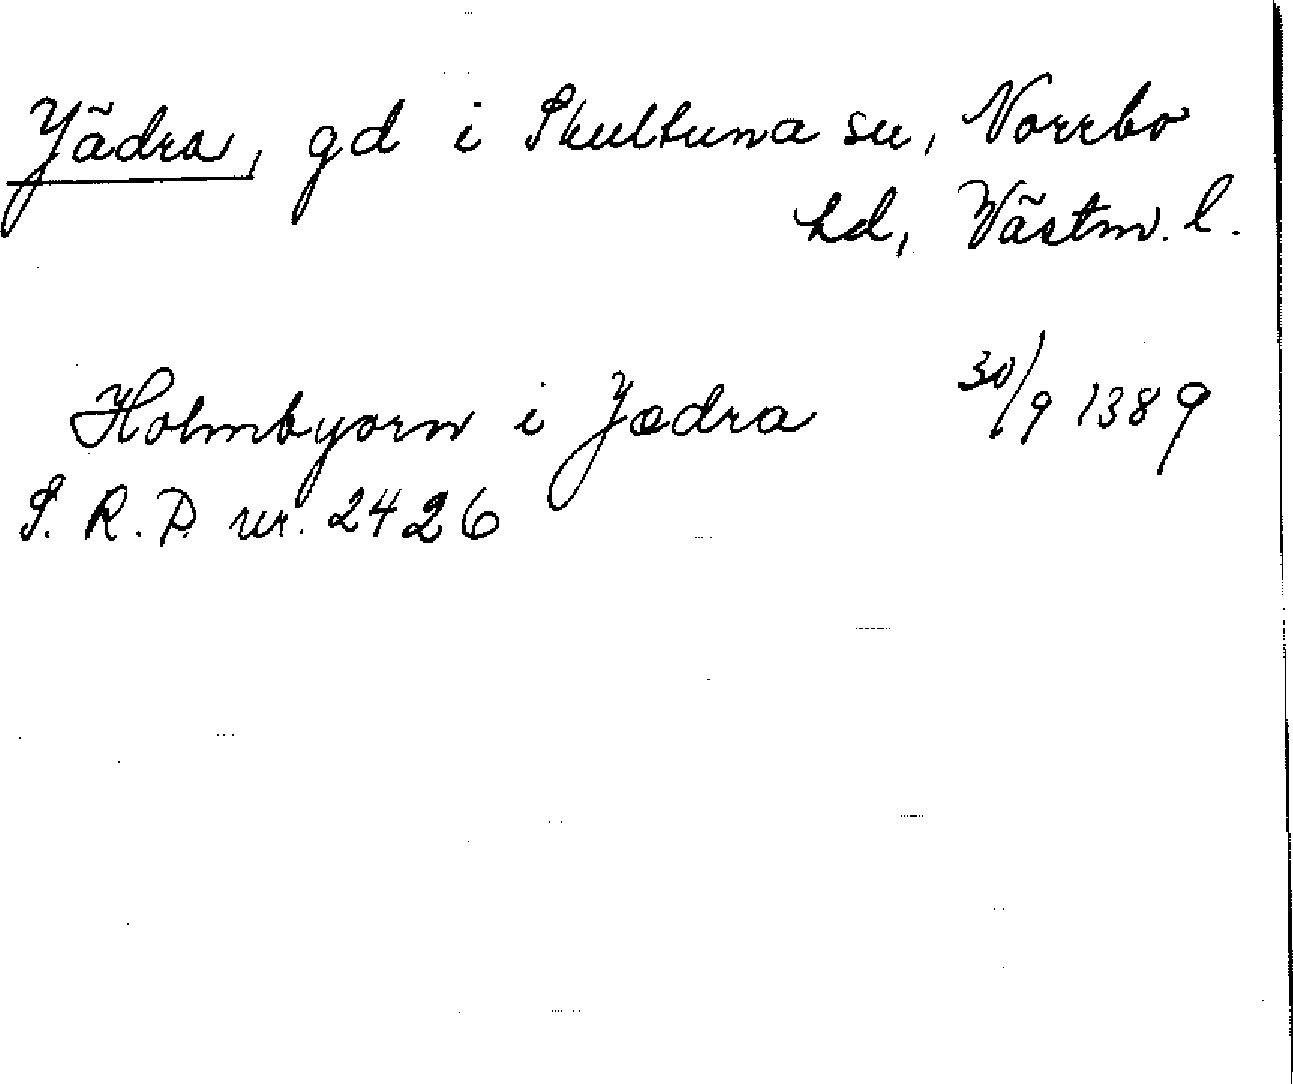 Yädra, gd i Skultuna sn, Norrbo
hd, Västm. l.
Holmbyorn i Jædra 30/9 1389
S. R. P. nr. 2426